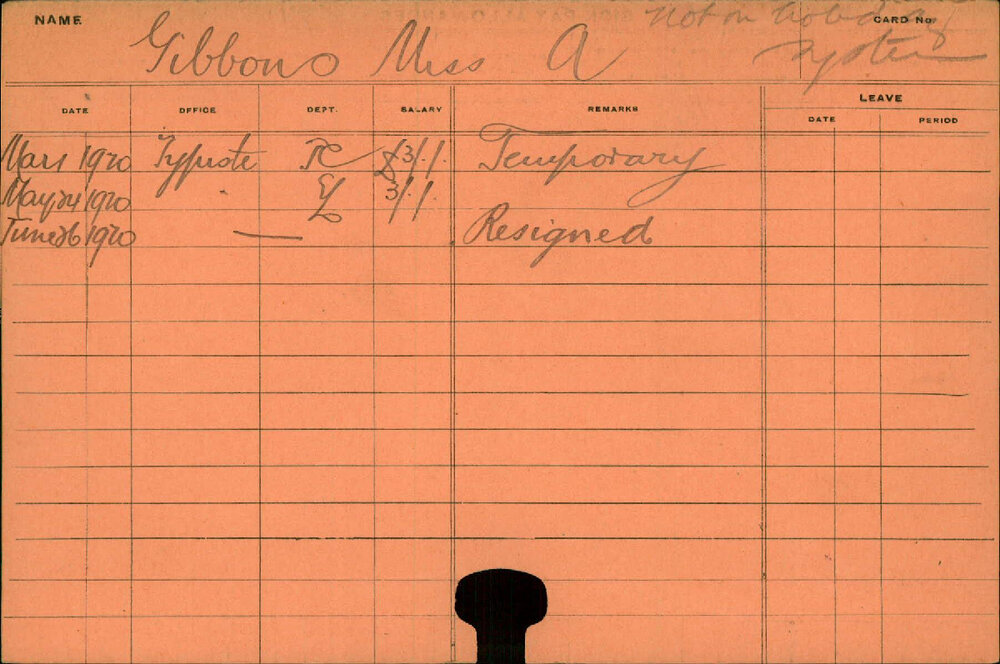 NAME Gibbons Miss A CARD No.
Not on holiday
system
DATE OFFICE DEPT. SALARY REMARKS LEAVE
DATE PERIOD
Mar 1 1920 Typiste £3/-/- Temporary
May 24 1920 " 3/-/-
June 26 1920 — Resigned